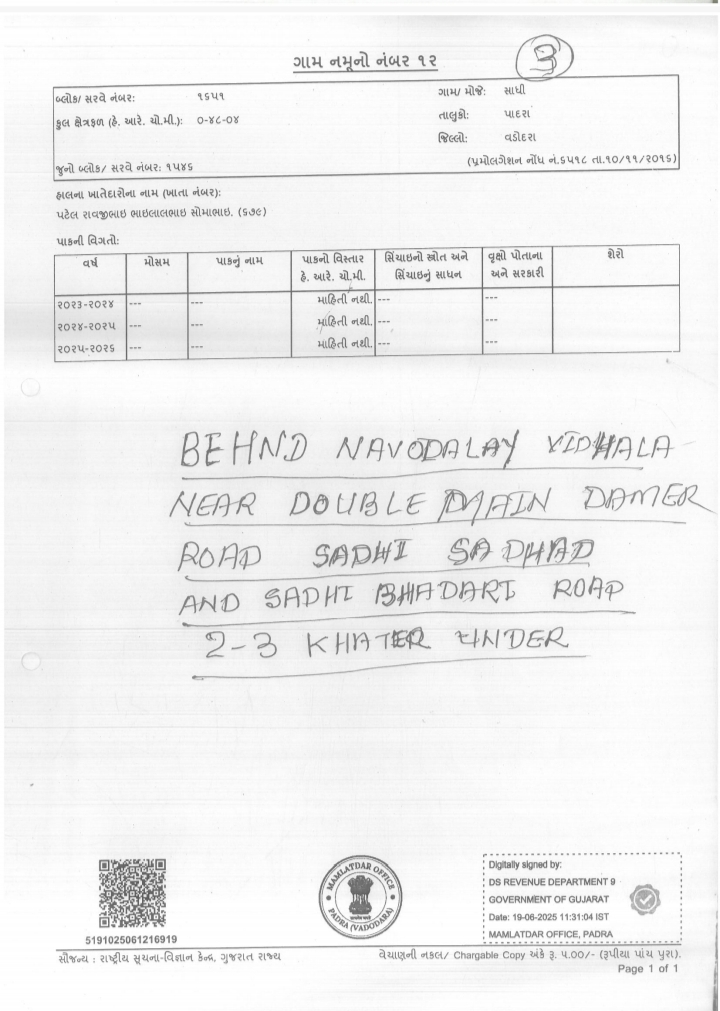 ગામ નમૂનો નંબર ૧૨
3
બ્લોક/ સરવે નંબર: ૧૬૫૧
ગામ/ મોજે: સાધી
કુલ ક્ષેત્રફળ (હે. આરે. ચો.મી.): ૦-૪૮-૦૪
તાલુકો: પાદરા
જિલ્લો: વડોદરા
જુનો બ્લોક/ સરવે નંબર: ૧૫૪૬
(પ્રમોલગેશન નોંધ નં.૬૫૧૮ તા.૧૦/૧૧/૨૦૧૬)
હાલના ખાતેદારોના નામ (ખાતા નંબર):
પટેલ રાવજીભાઇ ભાઇલાલભાઇ સોમાભાઇ. (૬૭૯)
પાકની વિગતો:
વર્ષ મોસમ પાકનું નામ પાકનો વિસ્તાર સિંચાઇનો સ્રોત અને વૃક્ષો પોતાના શેરો
હે. આરે. ચો.મી. સિંચાઇનું સાધન અને સરકારી
૨૦૨૩-૨૦૨૪ --- --- માહિતી નથી. --- ---
૨૦૨૪-૨૦૨૫ --- --- માહિતી નથી. --- ---
૨૦૨૫-૨૦૨૬ --- --- માહિતી નથી. --- ---
BEHND NAVODALAY VIDHALA
NEAR DOUBLE MAIN DAMER
ROAD SADHI SADHAD
AND SADHI BHADARI ROAD
2-3 KHATER UNDER
MAMLATDAR OFFICE
PADRA (VADODARA)
Digitally signed by:
DS REVENUE DEPARTMENT 9
GOVERNMENT OF GUJARAT
Date: 19-06-2025 11:31:04 IST
MAMLATDAR OFFICE, PADRA
5191025061216919
સૌજન્ય : રાષ્ટ્રીય સૂચના-વિજ્ઞાન કેન્દ્ર, ગુજરાત રાજ્ય
વેચાણની નકલ/ Chargable Copy અંકે રૂ. ૫.૦૦/- (રૂપીયા પાંચ પુરા).
Page 1 of 1